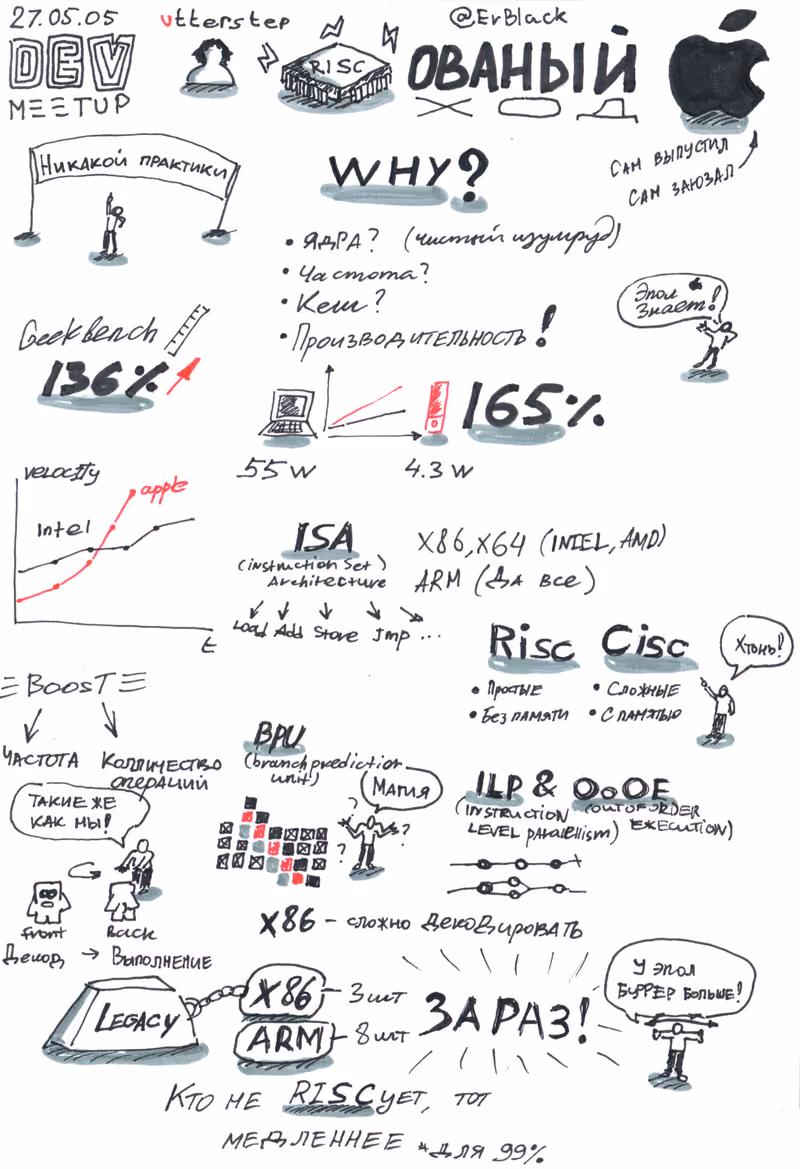 27.05.05
utterstep
@ErBlack
DEV
MEETUP
RISC
ОВАНЫЙ
НИКАКОЙ ПРАКТИКИ
WHY?
САМ ВЫПУСТИЛ
САМ ЗАЮЗАЛ
• ЯДРА? (чистый изумруд)
• Частота?
• Кеш?
• ПРОИЗВОДИТЕЛЬНОСТЬ!
Эпол
Знает!
GeekBench
136%
165%
55 W
4.3 W
VELOCITY
apple
Intel
t
ISA
(instruction Set)
Architecture
X86, X64 (INTEL, AMD)
ARM (ДА ВСЕ)
Load Add Store Jmp ...
Risc
Cisc
ХТОНЬ!
• ПРОСТЫЕ
• БЕЗ ПАМЯТИ
• СЛОЖНЫЕ
• С ПАМЯТЬЮ
BOOST
ЧАСТОТА
КОЛЛИЧЕСТВО
ОПЕРАЦИЙ
BPU
(branch prediction
unit)
МАГИЯ
? ? ? ?
ILP & OoOE
(INSTRUCTION
LEVEL parallelism)
(OUT OF ORDER
EXECUTION)
ТАКИЕ ЖЕ
КАК МЫ!
front
Back
Декод → Выполнение
X86 - СЛОЖНО ДЕКОДИРОВАТЬ
LEGACY
X86 - 3 шт
ARM - 8 шт
ЗА РАЗ!
У ЭПОЛ
БУФФЕР БОЛЬШЕ!
КТО НЕ RISCУЕТ, ТОТ
МЕДЛЕННЕЕ *ДЛЯ 99%